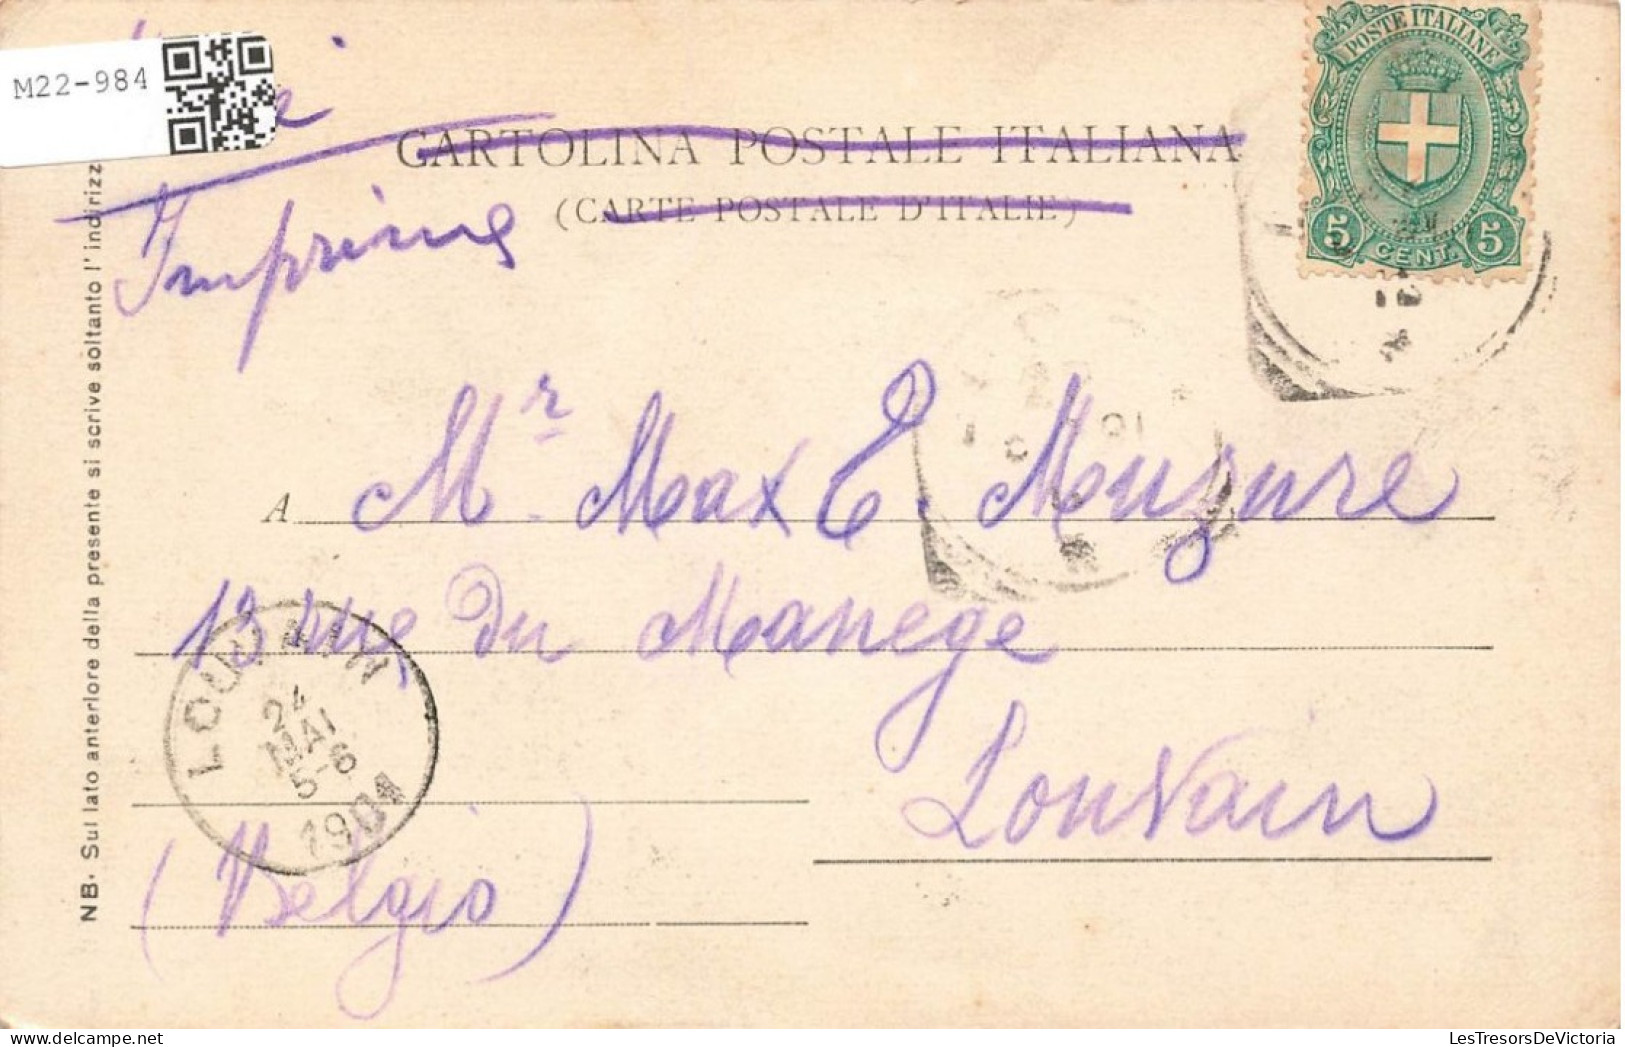 M22-984
POSTE ITALIANE
5 CENT. 5
CARTOLINA POSTALE ITALIANA
(CARTE POSTALE D'ITALIE)
Imprime
NB. Sul lato anteriore della presente si scrive soltanto l'indirizz
A Mr. Max E Muzure
13 rue Du Manege
Louvain
(Belgio)
LOUVAIN
24
MAI
5-6
1901
LesTresorsDeVictoria